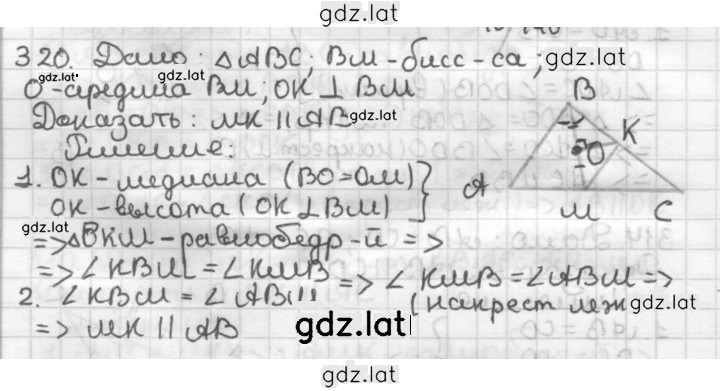 gdz.lat
320. Дано: △ABC; BM-бисс-са; gdz.lat
gdz.lat
O-средина BM; OK ⊥ BM
Доказать: MK || AB gdz.lat
Решение:
1. OK-медиана (BO=OM) }
gdz.lat OK-высота (OK ⊥ BM) }
=> △BKM-равнобедр-й =>
=> ∠KBM = ∠KMB => ∠KMB = ∠ABM =>
2. ∠KBM = ∠ABM (накрест леж gdz.lat
=> MK || AB gdz.lat
B
K
O
A
M
C
gdz.lat